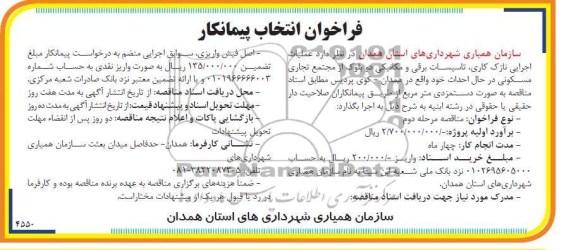 فراخوان انتخاب پیمانکار
سازمان همیاری شهرداری‌های استان همدان در نظر دارد عملیات
اجرایی نازک کاری، تاسیسات برقی و مکانیکی دو بلوک از مجتمع تجاری
مسکونی در حال احداث خود واقع در همدان، کوی پردیس مطابق اسناد
مناقصه به صورت دستمزدی متر مربع از طریق پیمانکاران صلاحیت دار
حقیقی یا حقوقی در رشته ابنیه به شرح ذیل به اجرا بگذارد:
- نوع فراخوان: مناقصه مرحله دوم
- برآورد اولیه پروژه: ۲/۷۰۰/۰۰۰/۰۰۰/- ریال
- مدت انجام کار: چهار ماه
- مبلغ خرید اسناد: واریز ۲۰۰/۰۰۰/- ریال به حساب
۰۱۰۲۶۹۵۶۰۵۰۰۰ نزد بانک ملی شعبه به نام سازمان همیاری
شهرداری‌های استان همدان.
- مدرک مورد نیاز جهت دریافت اسناد مناقصه:
- اصل فیش واریزی، سوابق اجرایی منضم به درخواست پیمانکار مبلغ
تضمین ۱۳۵/۰۰۰/۰۰۰ ریال به صورت واریز نقدی به حساب شماره
۰۱۰۱۹۶۶۶۶۶۰۰۳ و یا ارائه تضمین معتبر نزد بانک صادرات شعبه مرکزی.
- محل دریافت اسناد مناقصه: از تاریخ انتشار آگهی به مدت هفت روز
- مهلت تحویل اسناد و پیشنهاد قیمت: از تاریخ انتشار آگهی به مدت ده روز
- بازگشایی پاکات و اعلام نتیجه مناقصه: دو روز پس از انقضاء مهلت
تحویل پیشنهادات
- نشانی کارفرما: همدان- حدفاصل میدان بعثت سازمان همیاری
شهرداری‌های
تلفن: ۵-۳۸۲۲۰۸۷۳-۰۸۱
- ضمنا هزینه‌های برگزاری مناقصه به عهده برنده مناقصه بوده و کارفرما
در رد یا قبول هر یک از پیشنهادات مختار است.
سازمان همیاری شهرداری های استان همدان
۴۵۵۰